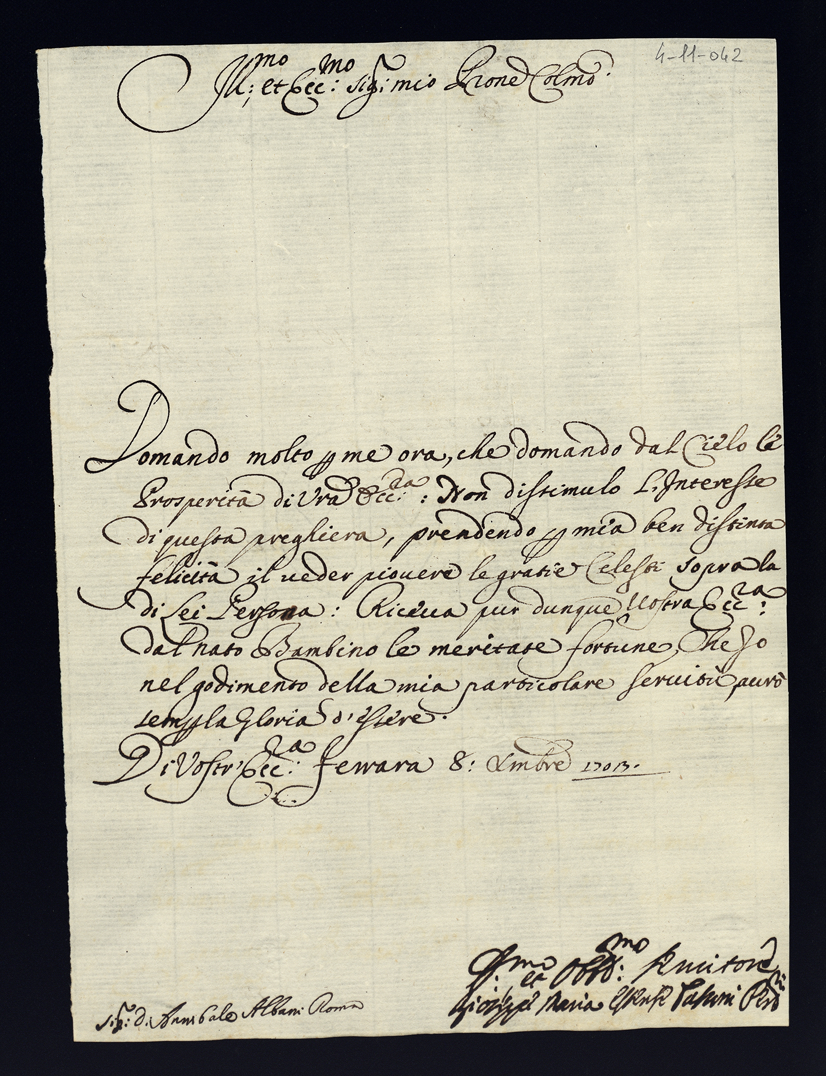 4-11-042
Ill:mo et Ecc:mo Sig:r mio Prone Colmo
Domando molto p me ora, che domando dal Cielo le
Prosperità di Vra Ecc:za : Non dissimulo L'Interesse
di questa pregliera, prendendo p mia ben distinta
felicità il veder piovere le gratie Celesti sopra la
di Lei Persona : Riceva pur dunque Vostra Ecc:za :
dal nato Bambino le meritate fortune, Che Io
nel godimento della mia particolare servitù, avrò
semp la Gloria d'essere.
Di Vostr' Ecc:za : Ferrara 8: Xmbre 1703.
et Obb:mo Servitore
Maria
Sig:r D. Annibale Albani Roma